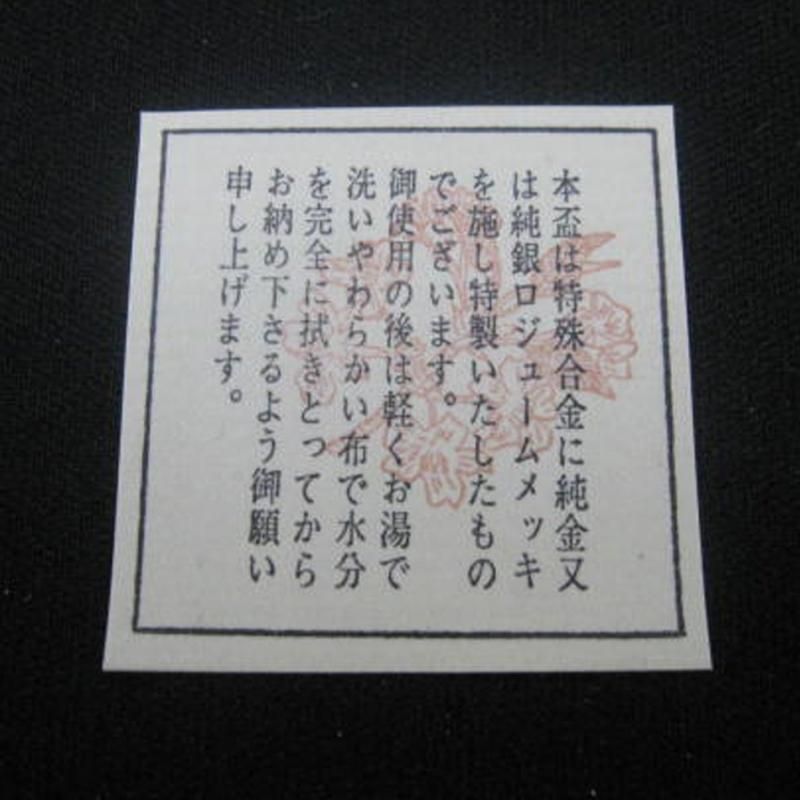 本盃は特殊合金に純金又
は純銀ロジュームメッキ
を施し特製いたしたもの
でございます。
御使用の後は軽くお湯で
洗いやわらかい布で水分
を完全に拭きとってから
お納め下さるよう御願い
申し上げます。